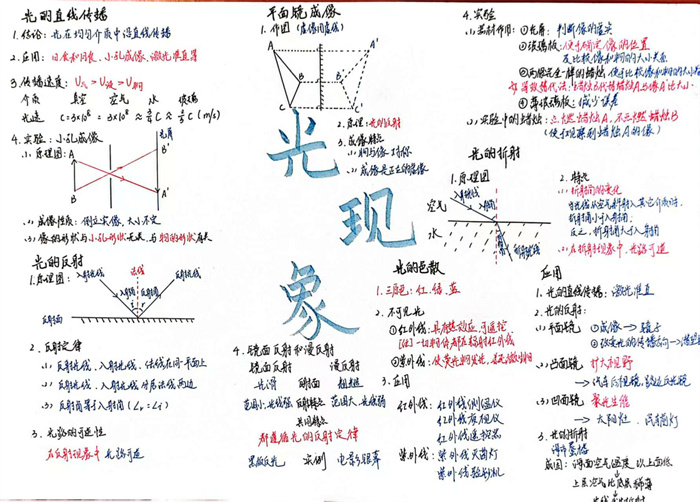 光的直线传播
1. 结论: 光在均匀介质中沿直线传播
2. 应用: 日食和月食、小孔成像、激光准直等
3. 传播速度: V气 > V液 > V固
介质 真空 空气 水 玻璃
光速 C=3×10⁸ ≈ 3×10⁸ ≈ 3/4 C ≈ 2/3 C (m/s)
4. 实验: 小孔成像
(1) 原理图:
A
B
光屏
B'
A'
(2) 成像性质: 倒立实像, 大小不定
(3) 像的形状与小孔形状无关, 与物的形状有关
光的反射
1. 原理图:
入射光线
法线
反射光线
入射角
反射角
反射面
2. 反射定律
(1) 反射光线、入射光线、法线在同一平面上
(2) 反射光线、入射光线分居法线两边
(3) 反射角等于入射角
3. 光路的可逆性
在反射现象中, 光路可逆
平面镜成像
1. 作图 (虚像用虚线)
A
B
C
A'
B'
C'
2. 原理: 光的反射
3. 成像特点
(1) 物与像对称
(2) 成像是正立的虚像
光
现
象
4. 镜面反射和漫反射
镜面反射 漫反射
光滑 反射面 粗糙
范围小, 光线强 反射特点 范围大, 光线弱
共同特点
都遵循光的反射定律
黑板反光 实例 电影银幕
4. 实验
(1) 器材作用: ① 光屏: 判断像的虚实
② 玻璃板: 便于确定像的位置
及比较像和物的大小关系
③ 两根完全一样的蜡烛: 便于比较像和物的大小
④ 薄玻璃板: 减少误差
(2) 实验中的蜡烛: 点燃蜡烛A, 不点燃蜡烛B
光的折射
1. 原理图
入射光线
入射角
空气
水
折射角
折射光线
2. 特点
(1) 折射角的变化
当光从空气斜射入其它介质时,
折射角小于入射角,
反之, 折射角大于入射角
(2) 在折射现象中, 光路可逆
光的色散
1. 三原色: 红、绿、蓝
2. 不可见光
① 红外线: 具有热效应, 可遥控
② 紫外线: 使荧光物质发光
3. 应用
红外线: 红外线测温仪
红外线夜视仪
红外线遥控器
紫外线: 紫外线灭菌灯
紫外线验钞机
应用
1. 光的直线传播: 激光准直
2. 光的反射:
(1) 平面镜 ① 成像 → 镜子
② 改变光的传播方向
(2) 凸面镜 扩大视野
→ 汽车后视镜、路边反光镜
(3) 凹面镜 聚光生热
→ 太阳灶、手电筒灯
3. 光的折射
海市蜃楼
成因: 海面空气温度以上面低